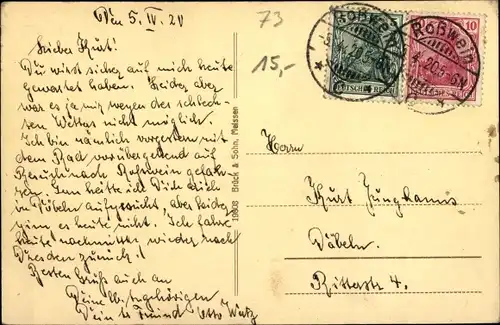 Den 5. IV. 20
Lieber Kurt!
Du wirst sicher auf mich heute
gewartet haben. Leider aber
war es ja mir wegen des schlech-
ten Wetters nicht möglich.
Ich bin nämlich vorgestern mit
dem Rad vorübergehend auf
Besuch nach Rosswein gefah-
ren. Gern hätte ich Dich auch
in Döbeln aufgesucht, aber leider
ging es heute nicht. Ich fahre
heute nachmittag wieder nach
Dresden zurück!
Besten Gruß auch an
Deine Angehörigen
Dein Freund Otto
73
15,-
Roßwein
20.5-6N
DEUTSCHES REICH
Roßwein
20.5-6N
10
19908 Brück & Sohn, Meissen
Herrn
Kurt Junghanns
Döbeln.
Ritterstr. 4.